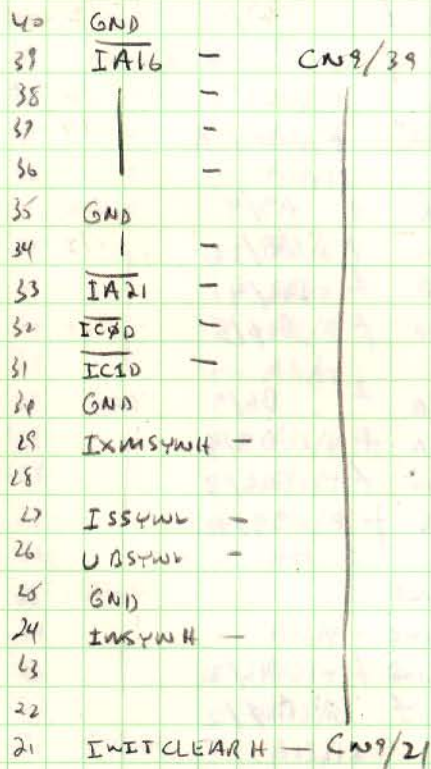 40 GND
39 I̅A̅1̅6̅ — CN9/39
38 —
37 —
36 —
35 GND
34 —
33 I̅A̅2̅1̅ —
32 I̅C̅0̅D̅ —
31 I̅C̅1̅D̅ —
30 GND
29 IXMSYNH —
28
27 ISSYNL —
26 UBSYNL —
25 GND
24 IMSYNH —
23
22
21 INITCLEARH — CN9/21